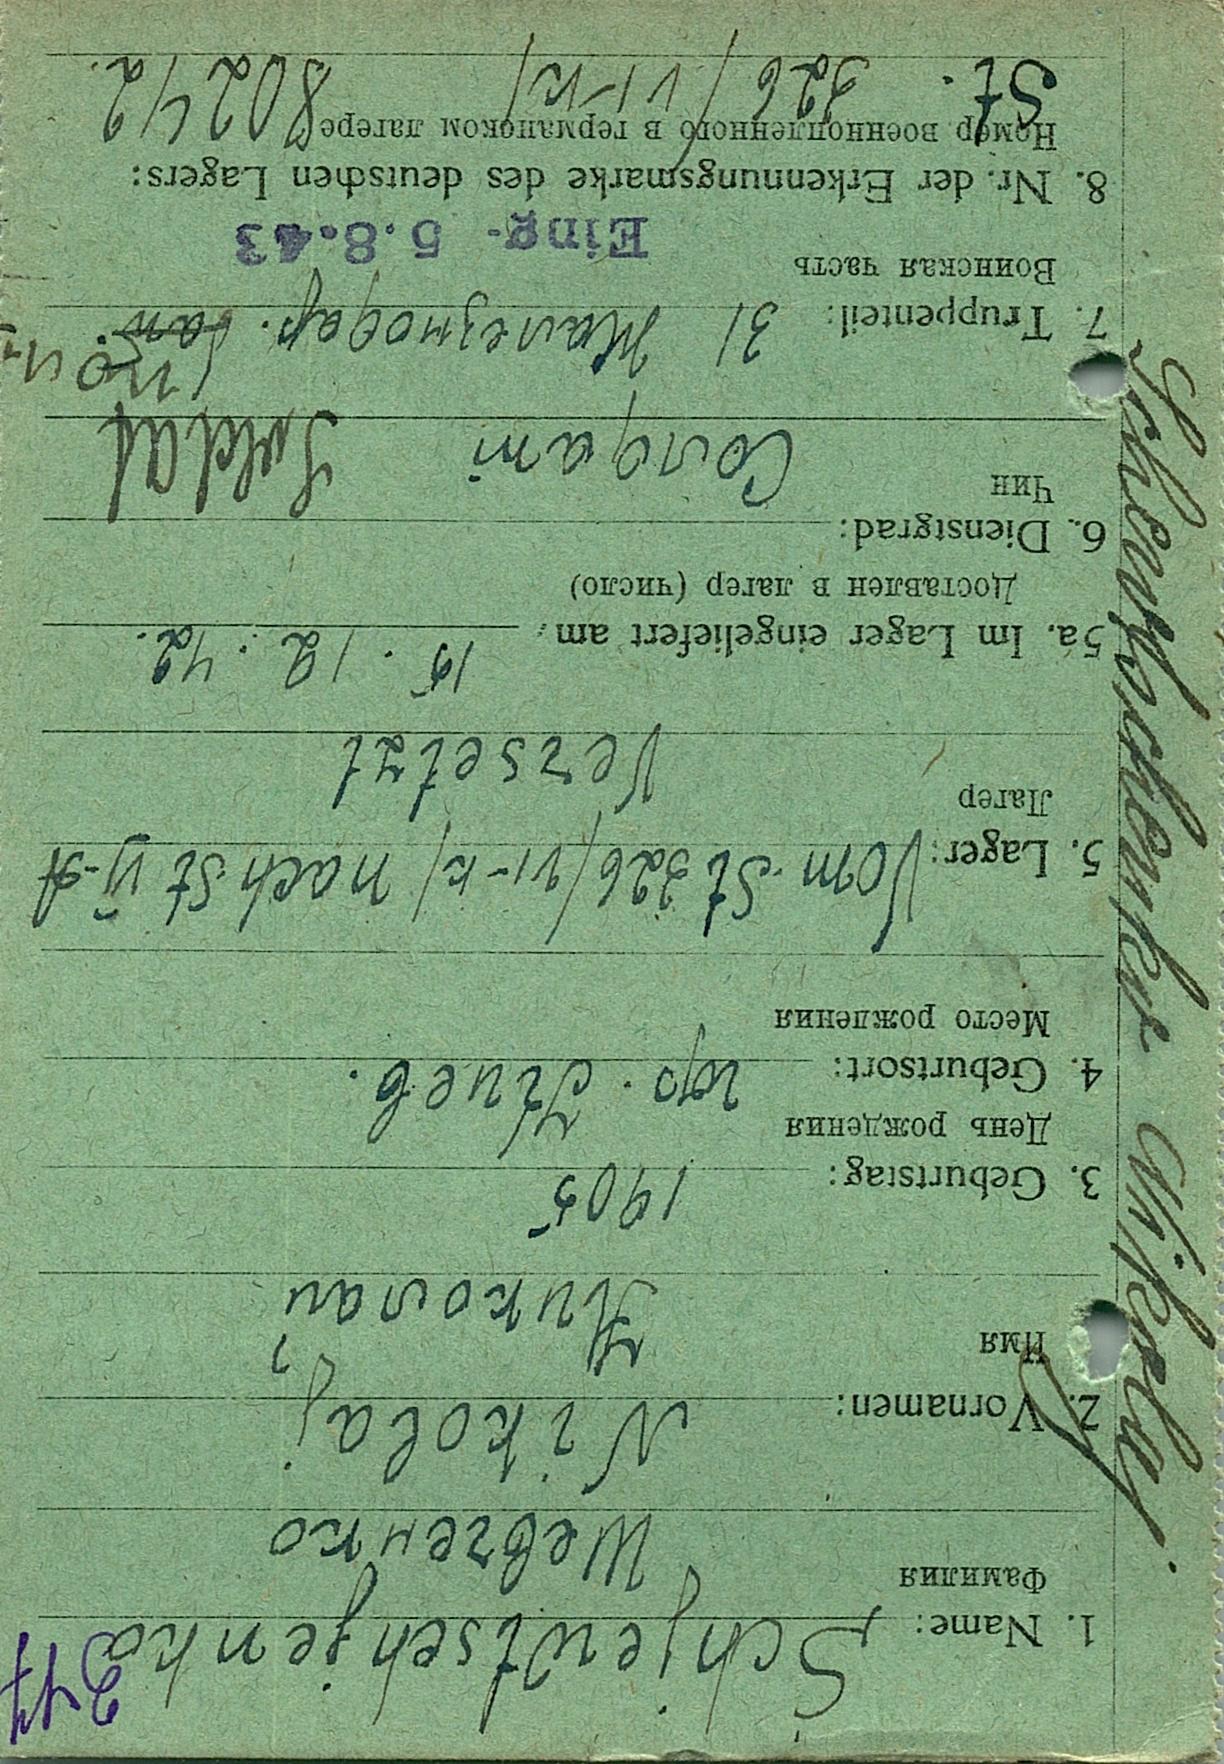 347
1. Name: Schjewtschjenko
Фамилия Шевченко
2. Vornamen: Nikolaj,
Имя Николай
3. Geburtstag: 1905
День рождения
4. Geburtsort: гор. Киев.
Место рождения
5. Lager: Vom. St 326/VI-K/ nach St VI-A
Лагер Versetzt
5a. Im Lager eingeliefert am: 15. 12. 42.
Доставлен в лагер (число)
6. Dienstgrad:
Чин Солдат Soldat
7. Truppenteil: 31 Железнодор. бат.
Воинская часть
Eing. 5.8.43
8. Nr. der Erkennungsmarke des deutschen Lagers:
Номер военнопленного в германском лагере 80242
St. 326/VI-K/
Schewtschenko Nikolaj